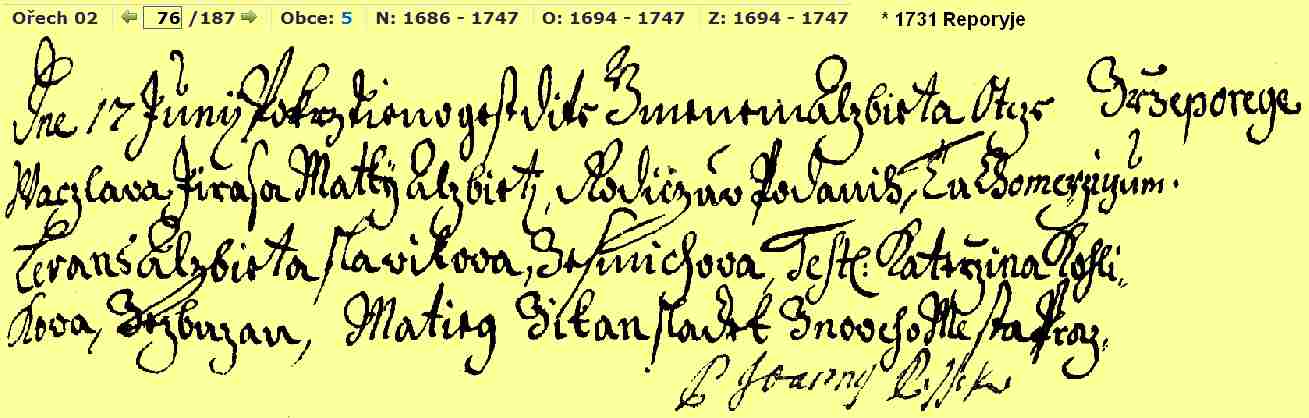 Ořech 02 76 /187 Obce: 5 N: 1686 - 1747 O: 1694 - 1747 Z: 1694 - 1747 * 1731 Reporyje
Dne 17 Juny Pokrztieno gest dite Zmenem Alzbieta Otcze Zrzeporege
Waczlava Jirasa Matky Alzbiety, Rodiczuv Podanih,
Levans Alzbieta slavikova, Zesmichova, Test: Katerzina Kohli-
kova, Zezbuzan, Matieg Zikan sladek Znoveho Mesta Praz:
P Joanny